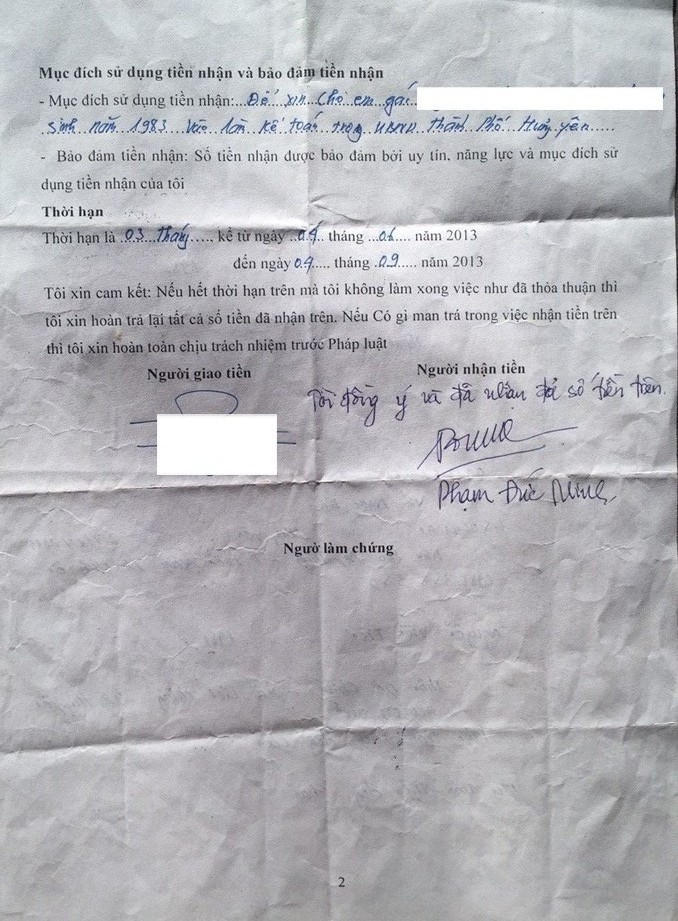 Mục đích sử dụng tiền nhận và bảo đảm tiền nhận
- Mục đích sử dụng tiền nhận:...Để xin cho em gái
sinh năm 1983 vào làm kế toán trong UBND Thành Phố Hưng Yên......
- Bảo đảm tiền nhận: Số tiền nhận được bảo đảm bởi uy tín, năng lực và mục đích sử
dụng tiền nhận của tôi
Thời hạn
Thời hạn là .03...tháng..... kể từ ngày ..04.. tháng ...06.... năm 2013
đến ngày 04..... tháng .09..... năm 2013
Tôi xin cam kết: Nếu hết thời hạn trên mà tôi không làm xong việc như đã thỏa thuận thì
tôi xin hoàn trả lại tất cả số tiền đã nhận trên. Nếu Có gì man trá trong việc nhận tiền trên
thì tôi xin hoàn toàn chịu trách nhiệm trước Pháp luật
Người giao tiền
Người nhận tiền
Tôi đồng ý và đã nhận đủ số tiền trên.
Phạm Đức Minh
Ngườ làm chứng
2